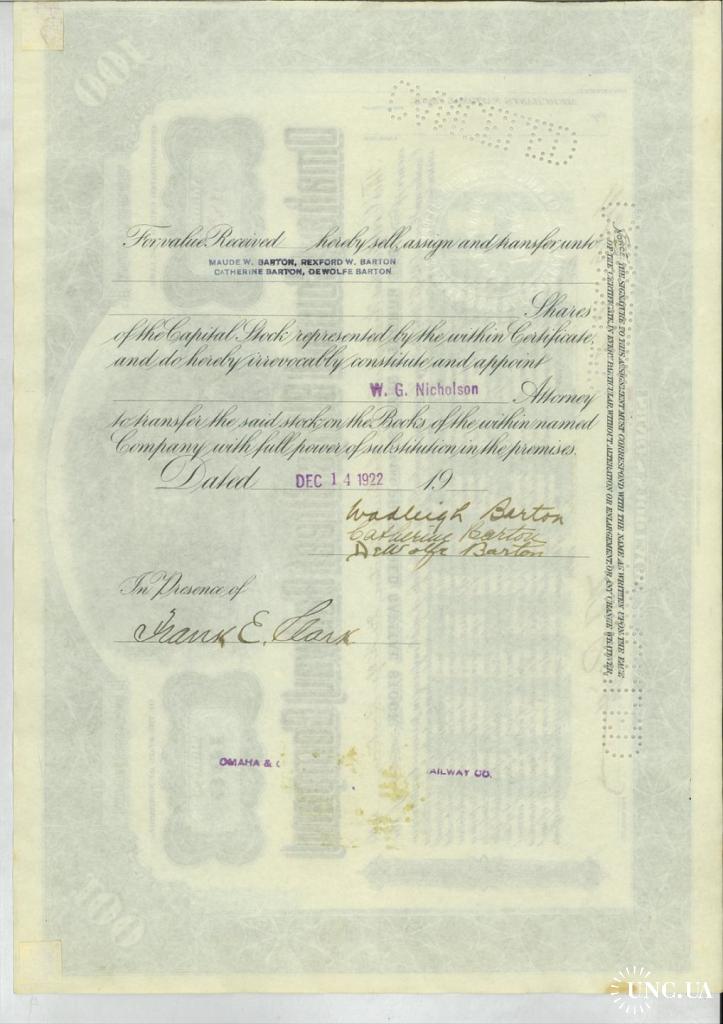 For value Received hereby sell, assign and transfer unto
MAUDE W. BARTON, REXFORD W. BARTON
CATHERINE BARTON, DEWOLFE BARTON
Shares
of the Capital Stock represented by the within Certificate,
and do hereby irrevocably constitute and appoint
W. G. Nicholson Attorney
to transfer the said stock on the Books of the within named
Company with full power of substitution in the premises.
Dated DEC 14 1922 19
Wadleigh Barton
Catherine Barton
DeWolfe Barton
In Presence of
Frank E. Clark
OMAHA & C AILWAY CO.
NOTICE. THE SIGNATURE TO THIS ASSIGNMENT MUST CORRESPOND WITH THE NAME AS WRITTEN UPON THE FACE
OF THE CERTIFICATE IN EVERY PARTICULAR WITHOUT ALTERATION OR ENLARGEMENT OR ANY CHANGE WHATEVER.
100
100
UNC.UA